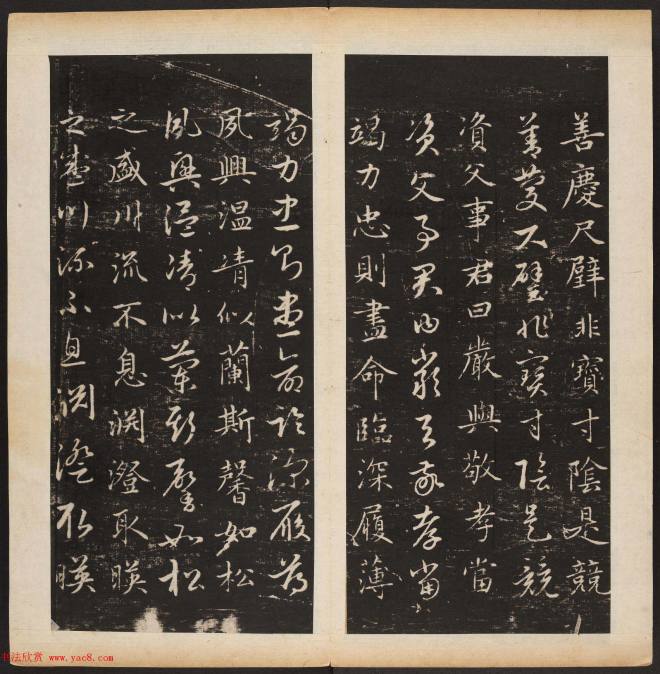 善慶尺璧非寶寸陰是競
善慶尺璧非寶寸陰是競
資父事君曰嚴與敬孝當
資父事君曰嚴與敬孝當
竭力忠則盡命臨深履薄
竭力忠則盡命臨深履薄
夙興温凊似蘭斯馨如松
夙興温凊似蘭斯馨如松
之盛川流不息渕澄取暎
之盛川流不息渕澄取暎
书法欣赏 www.yac8.com